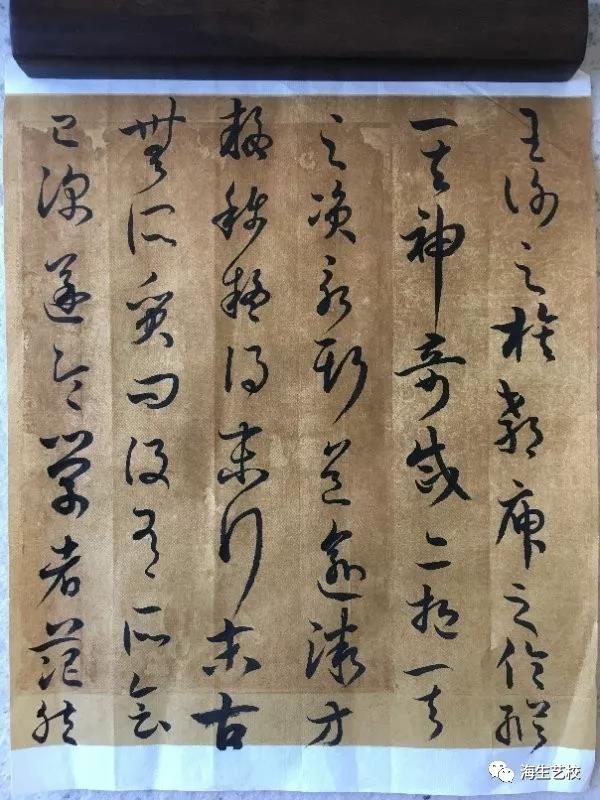 王謝之族郗庾之倫縱
其神奇咸亦挹其
之滋永斯道逾微方
疑稱疑得末行末古
無所質問設有所會
已深遂令學者茫然
海生艺校